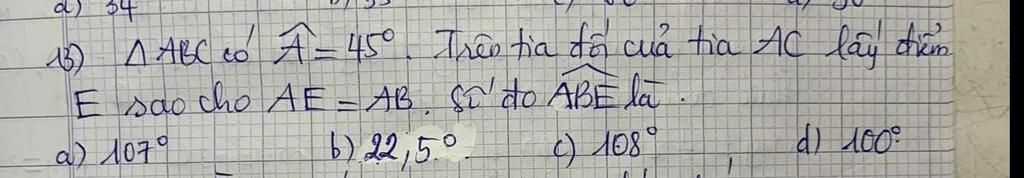 d) 54
13) Δ ABC có Â = 45°. Trên tia đối của tia AC lấy điểm
E sao cho AE = AB. Số đo ABE là.
a) 107° b) 22,5° c) 108° d) 100°.